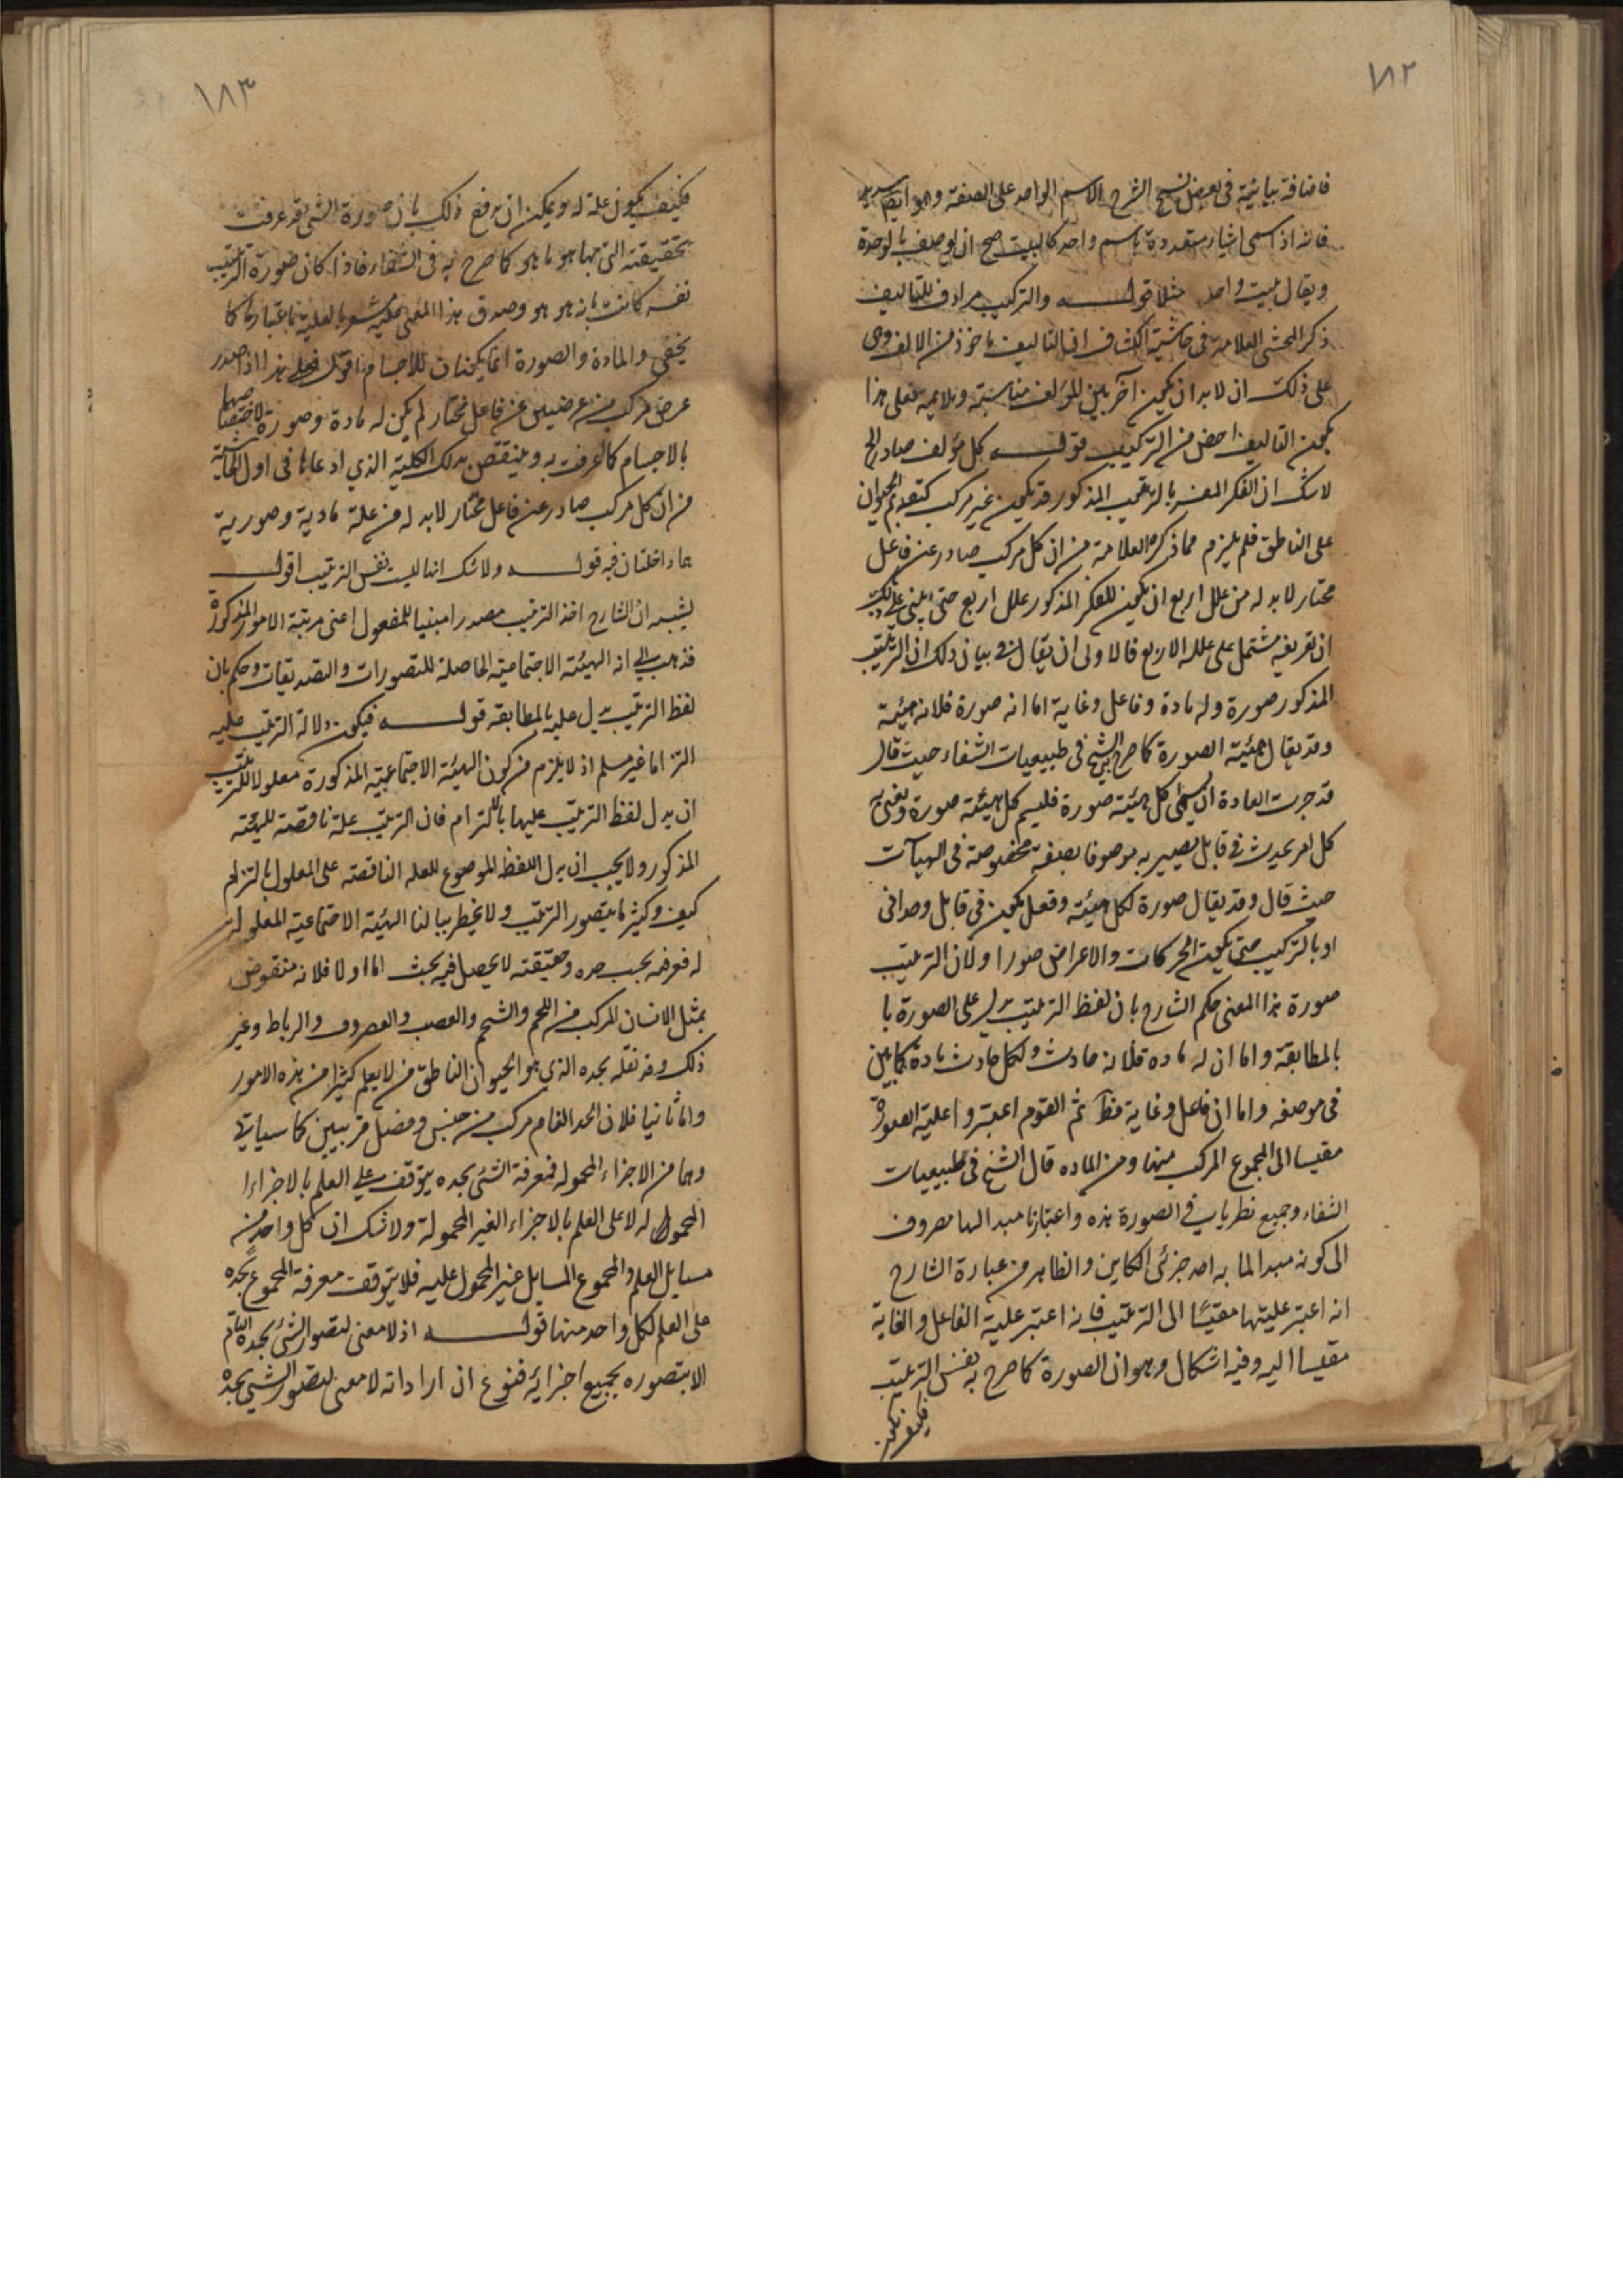 ١٨٢
فاضافة بيانية فى بعض نسخ الشرح الاسم الواحد على الصفة وهو ايضا سديد
فانه اذا سمى اشياء متعددة باسم واحد كالبيت صح ان يوصف بالوحدة
ويقال بيت واحد مثلا قولـــه والتركيب مرادف للتاليف
ذكر المحشى العلامة فى حاشية الكشاف ان التاليف ماخوذ من الالف وهى
على ذلك ان لابد ان يكون آخر بين المؤلف مناسبة وملايمة فعلى هذا
يكون التاليف اخص من التركيب قولـــه كل مؤلف صادر الخ
لا شك ان الفكر المفسر بالترتيب المذكور قد يكون غير مركب كتقديم الحيوان
على الناطق فلم يلزم مما ذكره العلامة من ان كل مركب صادر عن فاعل
مختار لابد له من علل اربع ان يكون للفكر المذكور علل اربع حتى يبنى على ذلك
ان تعريفه مشتمل على علله الاربع فالاولى ان يقال فى بيان ذلك ان الترتيب
المذكور صورة وله مادة وفاعل وغاية اما انه صورة فلانه هيئة
وقد يقال لهيئة الصورة كما صرح به الشيخ فى طبيعيات الشفاء حيث قال
قد جرت العادة ان يسمى كل هيئة صورة فليسم كل هيئة صورة ونعنى به
كل امر يحدث فى قابل يصير به موصوفا بصفة مخصوصة فى الهيآت
حيث قال وقد يقال صورة لكل هيئة وفعل يكون فى قابل وحدانى
او بالتركيب حتى يكون الحركات والاعراض صورا ولان الترتيب
صورة بهذا المعنى حكم الشارح بان لفظ الترتيب يدل على الصورة با
بالمطابقة واما ان له ماده فلانه حادث ولكل حادث مادة كما بين
فى موضعه واما ان فاعل وغاية فظ ثم القوم اعتبروا علية الصورة
مقيسا الى المجموع المركب منها ومن الماده قال الشيخ فى طبيعيات
الشفاء وجميع نظرياب فى الصورة هذه واعتبارنا مبدالها مصروف
الى كونه مبدالما به احد جزئى الكاين والظاهر من عبارة الشارح
انه اعتبر عليتها مقيسًا الى الترتيب فانه اعتبر علية الفاعل والغاية
مقيسا اليه وفيه اشكال وهو ان الصورة كما صرح به نفس الترتيب
فكيف يكون
١٨٣
فكيف يكون علة له ويمكن ان يدفع ذلك بان صورة الشئ قد عرفت
بحقيقته التى بها هو ما هو كما صرح به فى الشفاء فاذا كان صورة الترتيب
نفسه كانت بانه هو هو وصدق هذا المعنى عليه مشعر بالعلية باعتبارها كما
يخفى والمادة والصورة انما يكونان للاجسام اقول فعلى هذا اذا صدر
عرض مركب من عرضيين عن فاعل مختار لم يكن له مادة وصورة لاختصاصهما
بالاجسام كما اعرفت به وينتقض بذلك الكلية الذي ادعاها فى اول الحاشية
من ان كل مركب صادر عن فاعل مختار لابد له من علة مادية وصورية
هما داخلتان فيه قولـــه ولا شك انها ليست نفس الترتيب اقولـــ
يشبه ان الشارح اخذ الترتيب مصدرا مبنيا للمفعول اعنى مرتبة الامور المذكورة
فذهب الى انه الهيئة الاجتماعية الحاصلة للتصورات والتصديقات وحكم بان
لفظ الترتيب يدل عليه بالمطابقة قولـــه فيكون دلالة الترتيب عليه
التزاما غير مسلم اذ لا يلزم من كون الهيئة الاجتماعية المذكورة معلولا للترتيب
ان يدل لفظ الترتيب عليها بالالتزام فان الترتيب علة ناقصة للهيئة
المذكور ولا يجب ان يدل اللفظ الموضوع للعله الناقصة على المعلول بالتزام
كيف وكثيرا ما يتصور الترتيب ولا يخطر ببالنا الهيئة الاجتماعية المعلولة
له فعرفه بحسب حده وحقيقته لا يحصل فيه بحث اما اولا فلانه منقوض
بمثل الانسان المركب من اللحم والشحم والعصب والعضروف والرباط وغير
ذلك وقد نعقله بحده الذي هو الحيوان الناطق من لا يعلم كثيرا من هذه الامور
واما ثانيا فلان الحد التام مركب من جنس وفصل قريبين كما سياتى
وهما من الاجزاء المحموله فمعرفة الشئ بحده يتوقف على العلم بالاجزاء ا
المحموله له لا على العلم بالاجزاء الغير المحمولة ولا شك ان كل واحد من
مسايل العلم والمجموع المسايل غير المحمول عليه فلا يتوقف معرفة المجموع بحده
على العلم لكل واحد منها قولـــه اذ لا معنى لتصور الشئ بحده التام
الا بتصوره بجميع اجزائه فنوع ان اراد انه لا معنى لتصور الشئ بحده